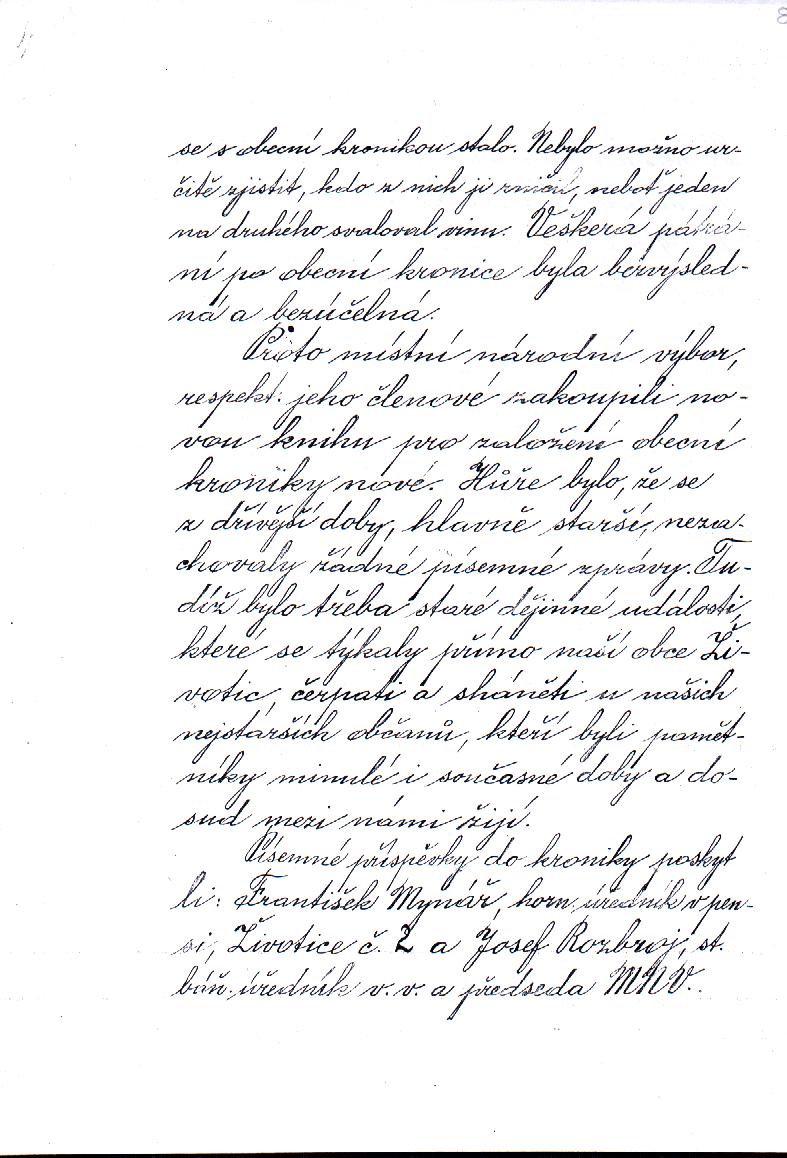 8
se s obecní kronikou stalo. Nebylo možno ur-
čitě zjistit, kdo z nich ji zničil, neboť jeden
na druhého svaloval vinu. Veškerá pátrá-
ní po obecní kronice byla bezvýsled-
ná a bezúčelná.
Proto místní národní výbor,
respekt. jeho členové zakoupili no-
vou knihu pro založení obecní
kroniky nové. Hůře bylo, že se
z dřívější doby, hlavně starší, neza-
chovaly žádné písemné zprávy. Tu-
díž bylo třeba staré dějinné události,
které se týkaly přímo naší obce Ži-
votic, čerpati a sháněti u našich
nejstarších občanů, kteří byli pamět-
níky minulé i současné doby a do-
sud mezi námi žijí.
Písemné příspěvky do kroniky poskyt
li: František Mynář, horn. úředník v pen-
si, Životice č. 2 a Josef Rozbroj, st.
báň. úředník v. v. a předseda MNV.